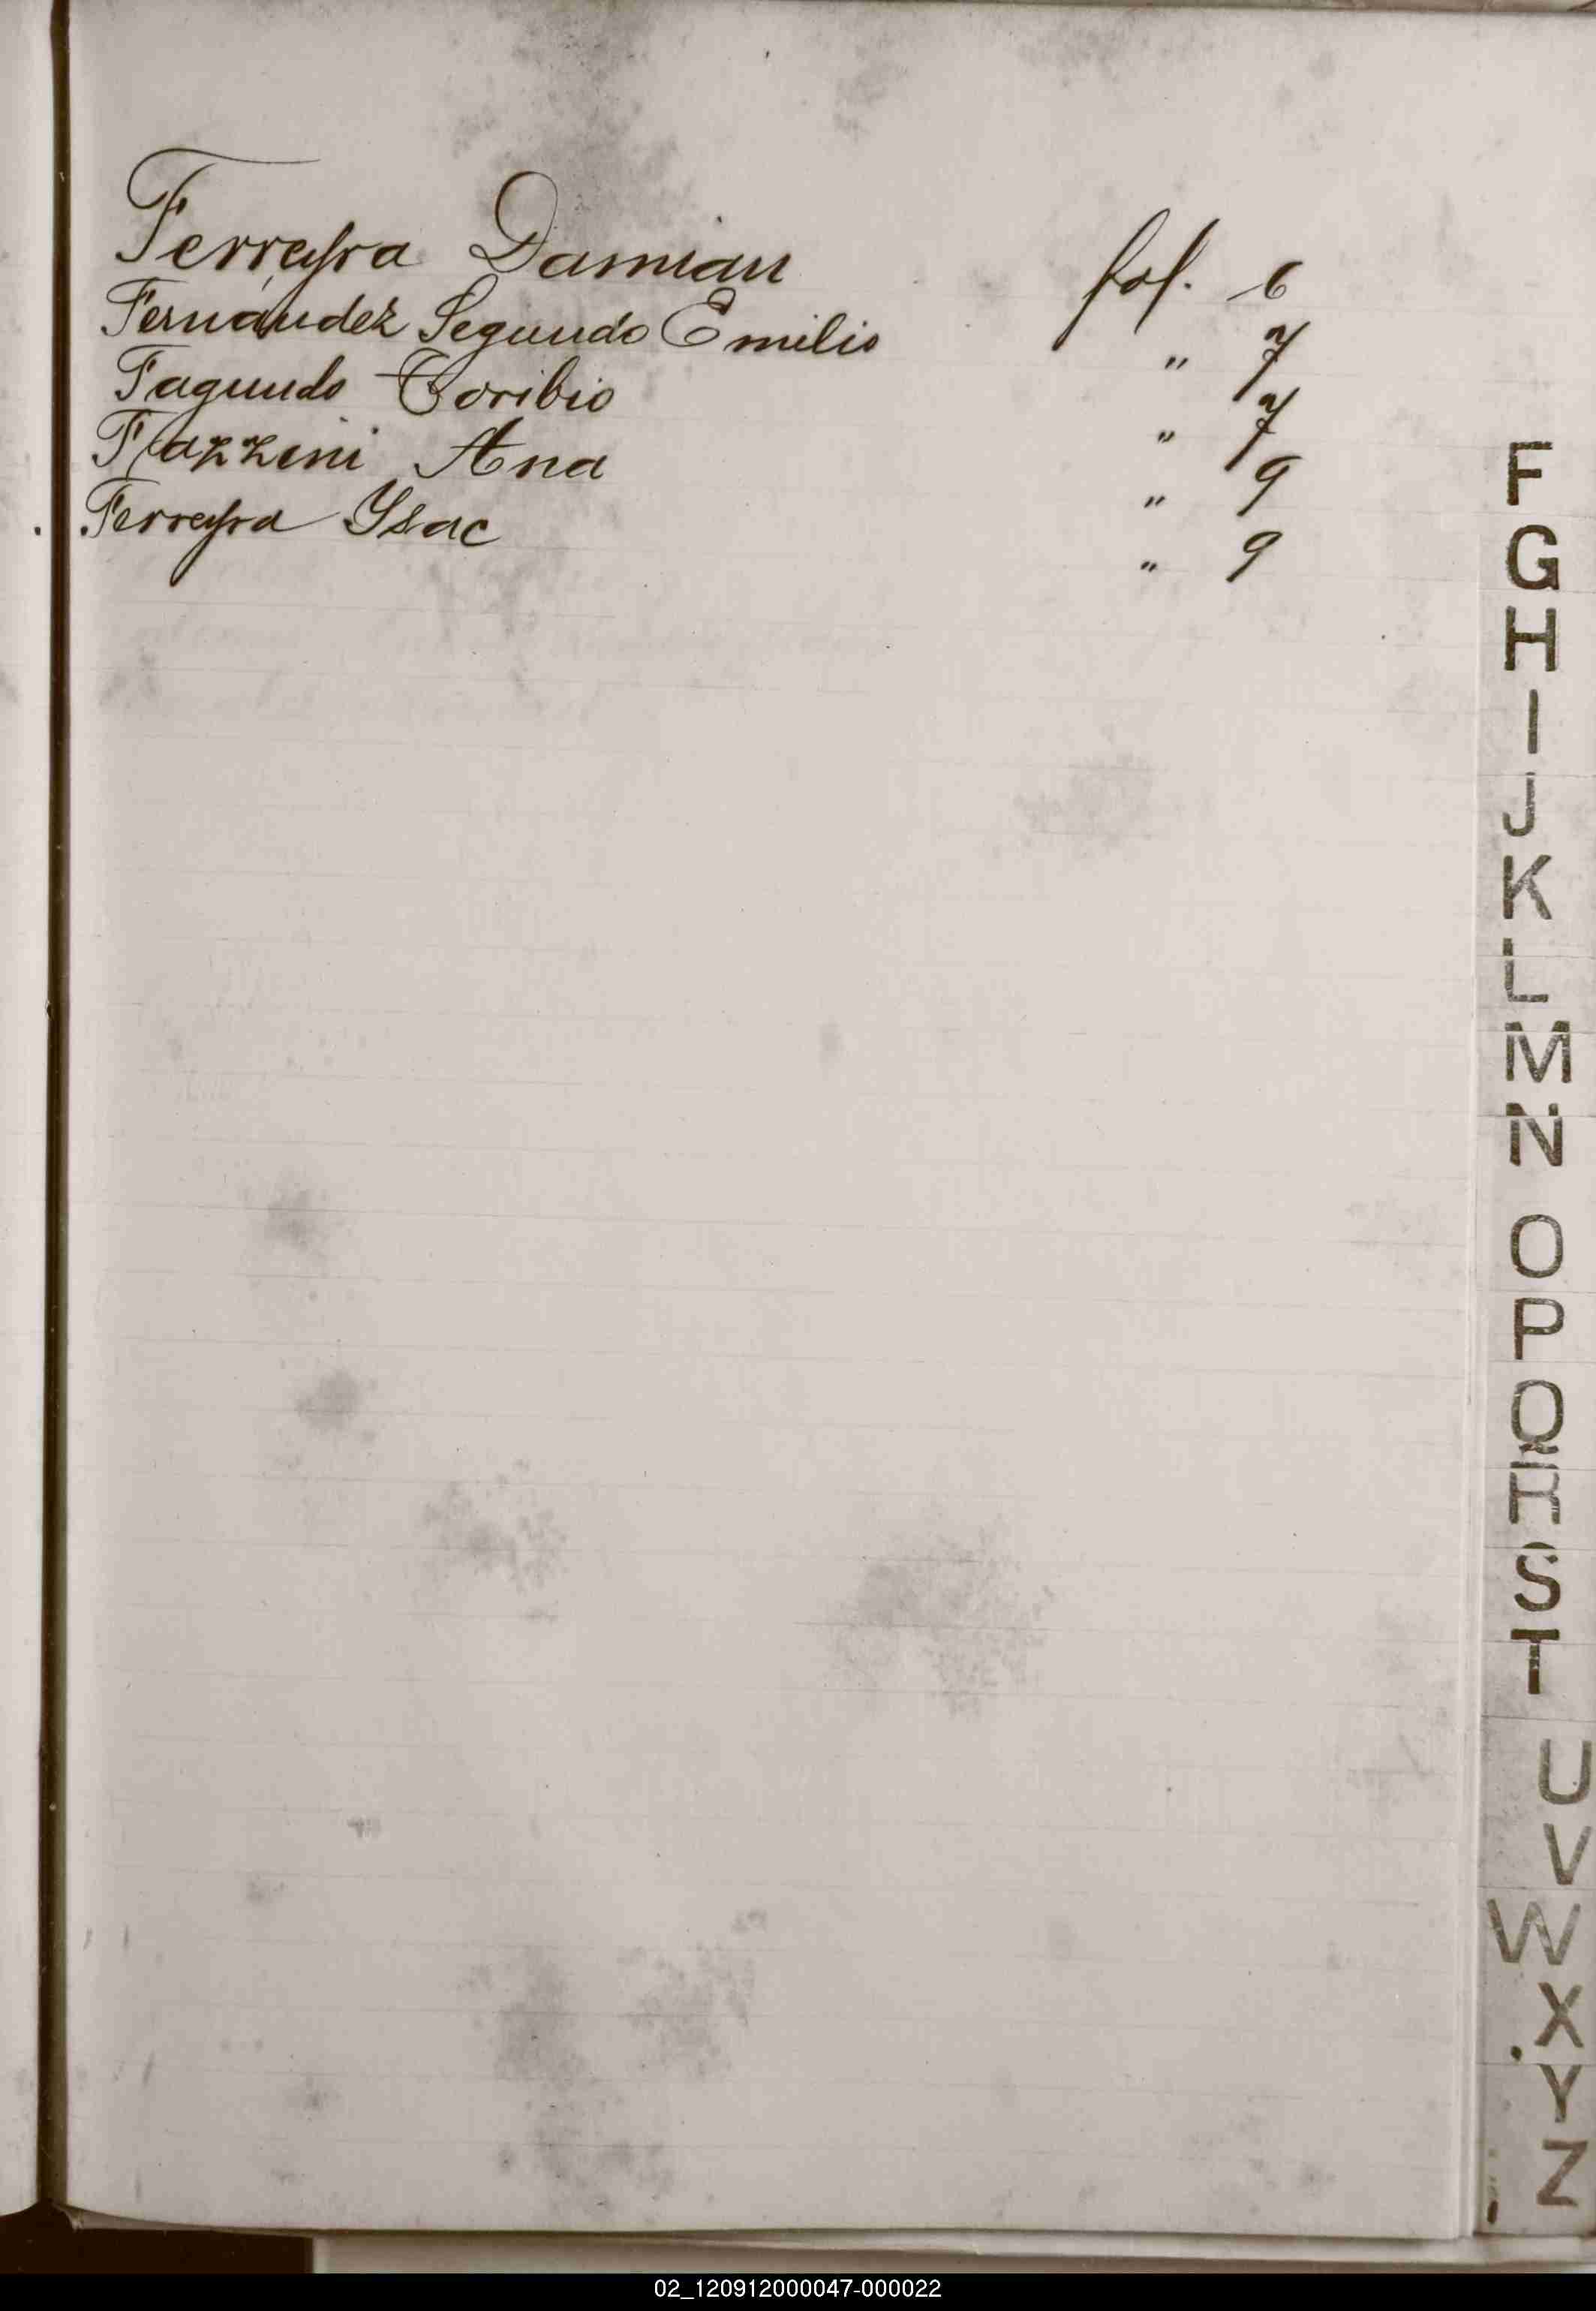 Ferreyra Damian fol. 6
Fernández Segundo Emilio " 7
Fagundo Toribio " 7
Fazzini Ana " 9
Ferreyra Ysac " 9
F
G
H
I
J
K
L
M
N
O
P
Q
R
S
T
U
V
W
X
Y
Z
02_120912000047-000022